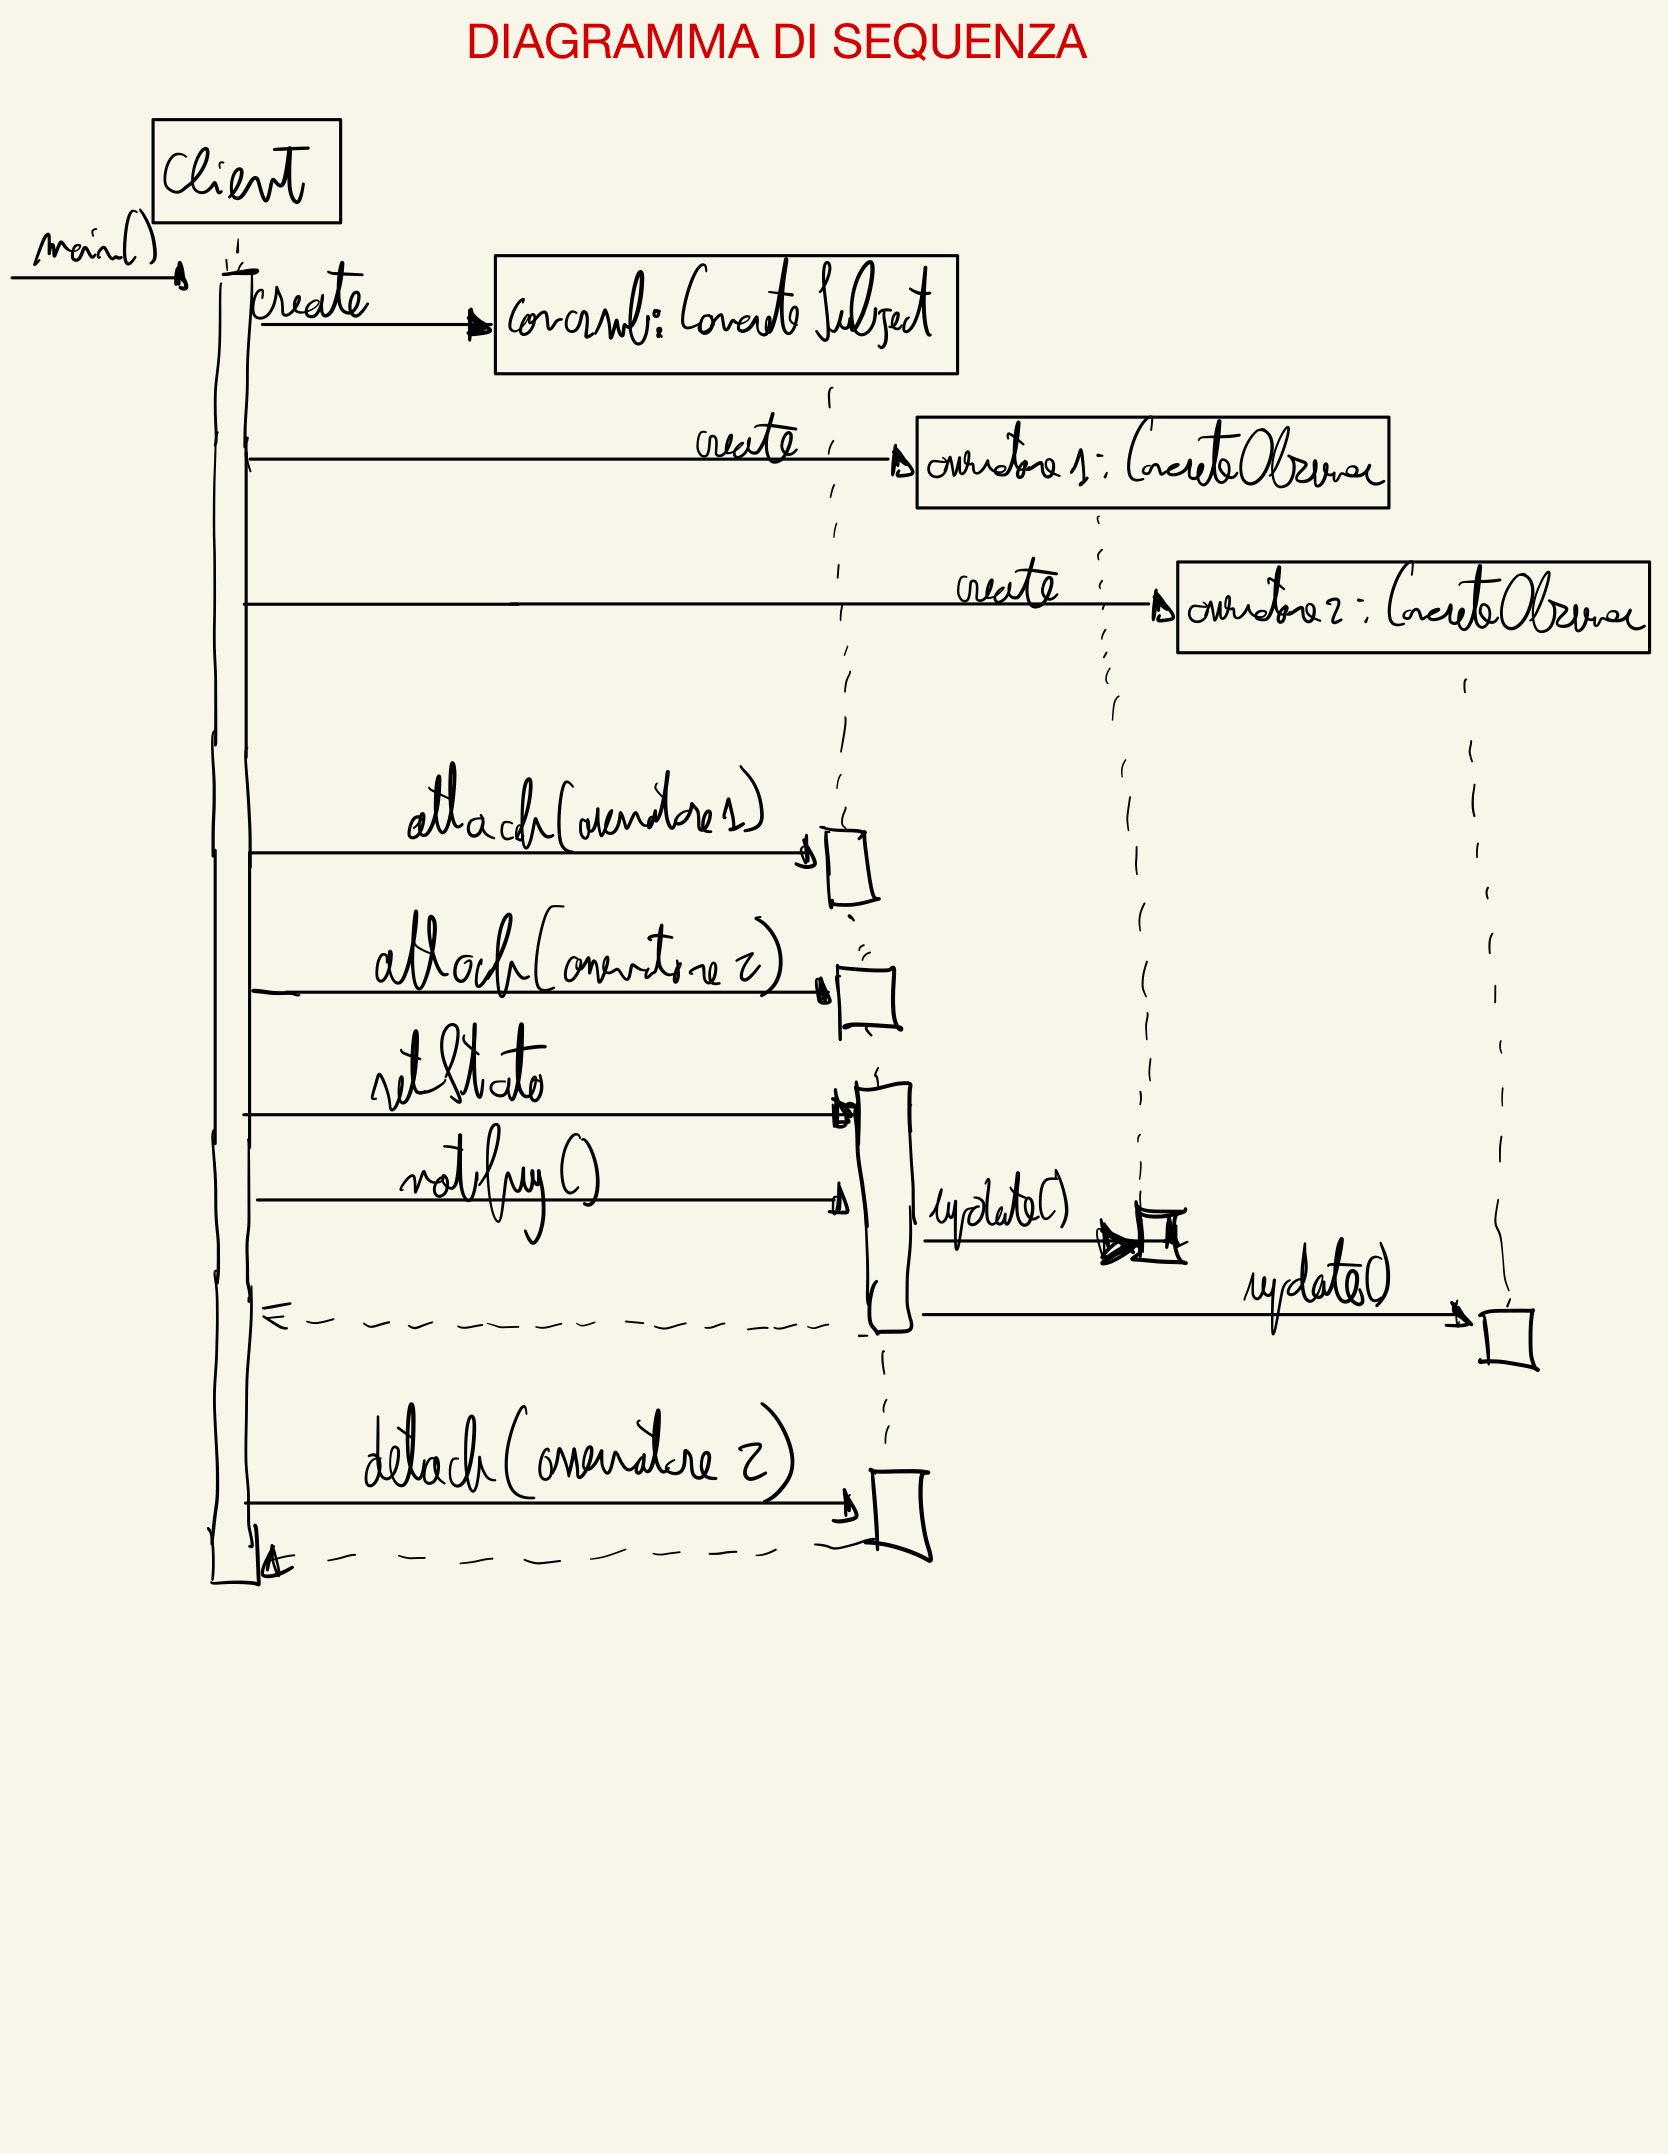 DIAGRAMMA DI SEQUENZA
Client
main()
create
: Concrete Subject
create
1: ConcreteObserver
create
2: ConcreteObserver
attach(osservatore1)
attach(osservatore 2)
setStato
notify()
update()
update()
detach(osservatore 2)